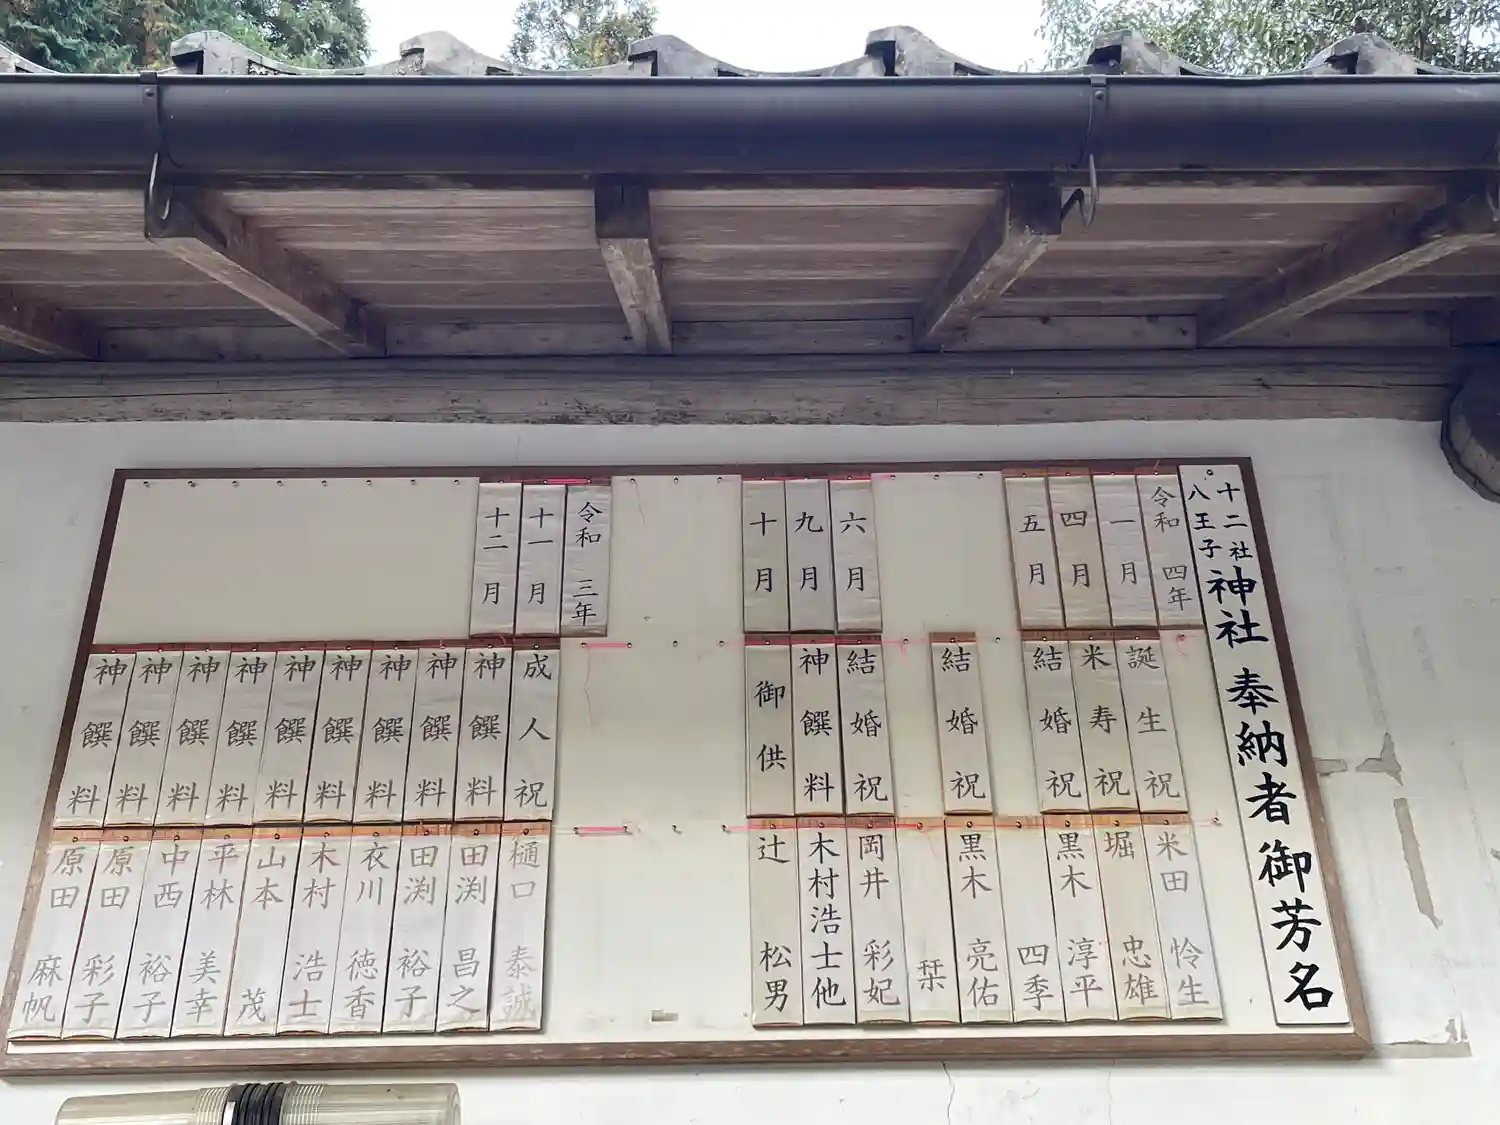 十二社
八王子
神社 奉納者御芳名
令和 四年
一月
誕生祝
米田 怜生
四月
米寿祝
堀 忠雄
五月
結婚祝
黒木 淳平
四季
結婚祝
黒木 亮佑
栞
六月
結婚祝
岡井 彩妃
九月
神饌料
木村浩士他
十月
御供
辻 松男
令和 三年
十一月
成人祝
樋口 泰誠
十二月
神饌料
田渕 昌之
神饌料
田渕 裕子
神饌料
衣川 徳香
神饌料
木村 浩士
神饌料
山本 茂
神饌料
平林 美幸
神饌料
中西 裕子
神饌料
原田 彩子
神饌料
原田 麻帆